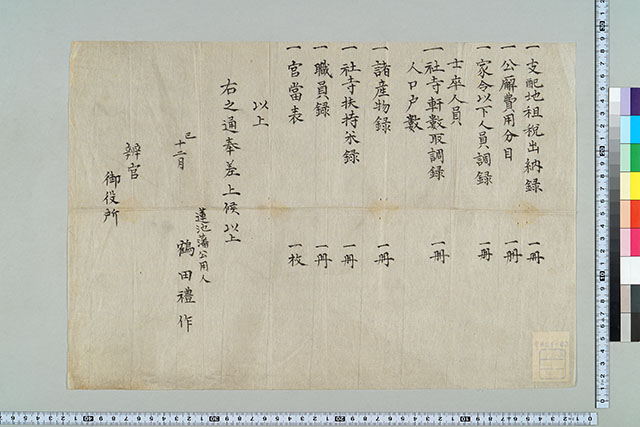 一支配地租税出納録 一冊
一公廨費用分目 一冊
一家令以下人員調録 一冊
士卒人員
一社寺軒數取調録 一冊
人口戸數
一諸産物録 一冊
一社寺扶持米録 一冊
一職員録 一冊
一官當表 一枚
以上
右之通奉差上候以上
巳十二月
蓮池藩公用人
鶴田禮作
辨官
御役所